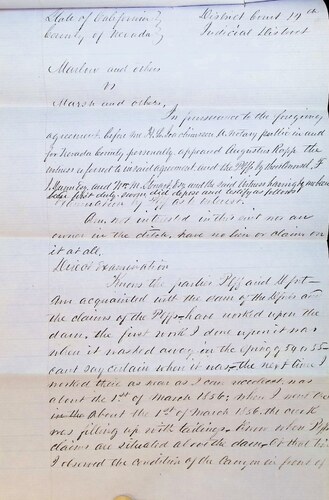 State of California } District Court 14th
County of Nevada } Judicial District
Marlow and others
vs
Marsh and others,
In pursuance to the foregoing
agreement before me a notary public in and
for Nevada County personally appeared Augustus Kopp the
witness referred to in said agreement and the Plffs by their Counsel
and the said witness having by me been
first duly sworn deposes and testifies as follows
Am not interested in this suit nor an
owner in the ditch, have no lien or claim on
it at all.
Direct Examination
Know the parties Plff and Dfnt—
Am acquainted with the dam of the Dfnts and
the claims of the Plffs—have worked upon the
dam. the first work I done upon it was
when it washed away in the spring of 54 or 55—
cant say certain when it was—the next time I
worked there as near as I can recollect, was
about the 1st of March 1856; when I went there
in the about the 1st of March 1856. the creek
was filling up with tailings. Know when Plffs
claims are situated above the dam. At that time
I observed the condition of the Canyon in front of